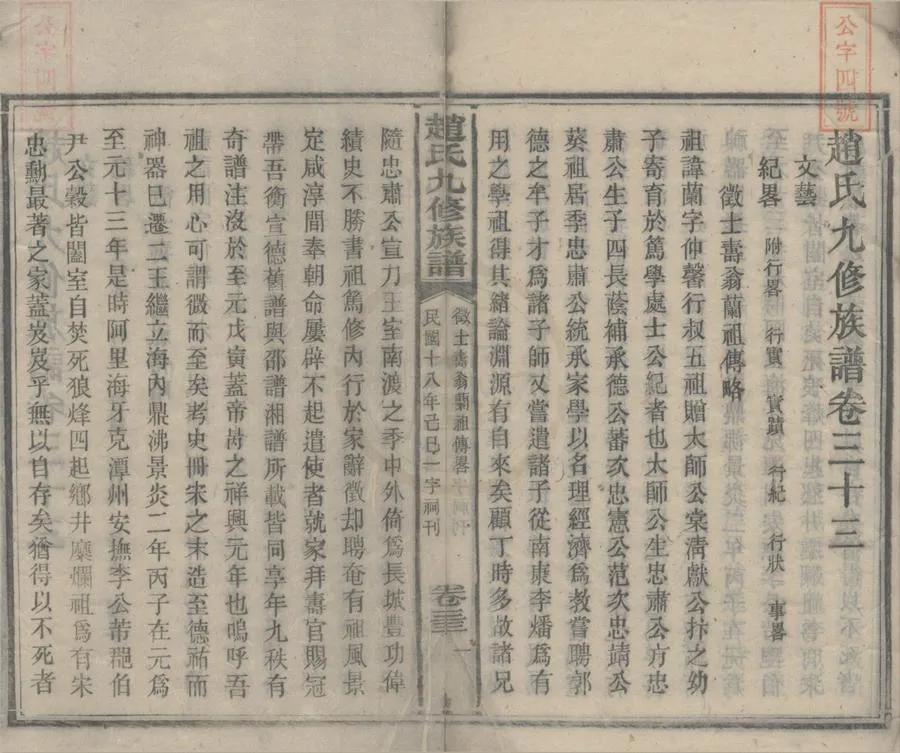 公字四號
趙氏九修族譜卷三十三
文藝
紀畧 附行畧 行實 實蹟 行紀 行狀 事畧
徵士壽翁蘭祖傳略
祖諱蘭字仲馨行叔五祖贈太師公棠淸獻公抃之幼
子寄育於篤學處士公紀者也太師公生忠肅公方忠
肅公生子四長葴補承德公蕃次忠憲公范次忠靖公
葵祖居季忠肅公統承家學以名理經濟爲教嘗聘郭
德之牟子才爲諸子師又嘗遣諸子從南康李燔爲有
用之學祖得其緒論淵源有自來矣顧丁時多故諸兄
趙氏九修族譜
徵士壽翁蘭祖傳畧
民國十八年己巳一字祠刊
卷三十三
一
隨忠肅公宣力王室南渡之季中外倚爲長城豐功偉
績史不勝書祖篤修內行於家辭徵却聘奄有祖風景
定咸淳間奉朝命屢辟不起遣使者就家拜壽官賜冠
帶吾衡宣德舊譜與邵譜湘譜所載皆同享年九秩有
奇譜注沒於至元戊寅蓋帝昺之祥興元年也嗚呼吾
祖之用心可謂微而至矣考史冊宋之末造至德祐而
神器已遷二王繼立海內鼎沸景炎二年丙子在元爲
至元十三年是時阿里海牙克潭州安撫李公芾暨伯
尹公穀皆闔室自焚死狼烽四起鄉井麋爛祖爲有宋
忠勳最著之家蓋岌岌乎無以自存矣猶得以不死者
公字四號